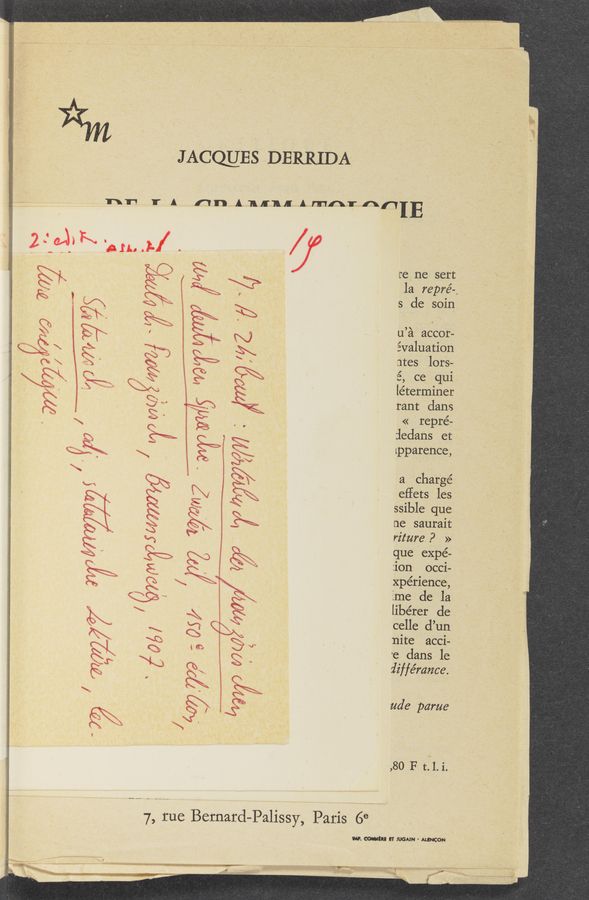 m
JACQUES DERRIDA
DE LA GRAMMATOLOGIE
2e edit
19
M. A. Thibaut : Wörterbuch der französischen
und deutschen Sprache. Zweiter Teil, 150e édition,
Deutsch-Französisch, Braunschweig, 1907.
Statarisch, adj, statarische Lektüre, lec-
ture énergétique.
re ne sert
la repré-
s de soin
u'à accor-
évaluation
ntes lors-
é, ce qui
déterminer
rant dans
« repré-
dedans et
apparence,
a chargé
effets les
ssible que
ne saurait
riture ? »
que expé-
ion occi-
xpérience,
me de la
libérer de
celle d'un
mite acci-
e dans le
différance.
ude parue
,80 F t.l.i.
7, rue Bernard-Palissy, Paris 6e
IMP. CORBIÈRE ET JUGAIN - ALENÇON